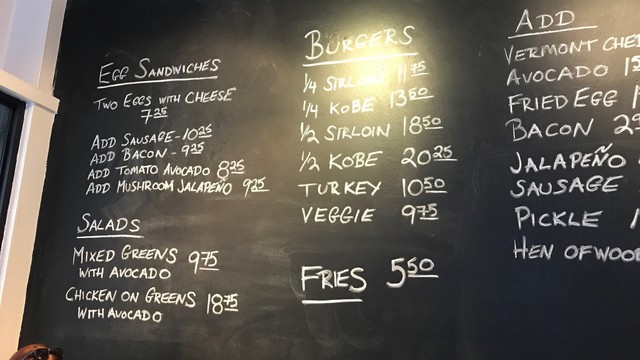 EGG SANDWICHES
TWO EGGS WITH CHEESE
7.25
ADD SAUSAGE - 10.25
ADD BACON - 9.25
ADD TOMATO AVOCADO 8.25
ADD MUSHROOM JALAPEÑO 9.25
SALADS
MIXED GREENS 9.75
WITH AVOCADO
CHICKEN ON GREENS 18.75
WITH AVOCADO
BURGERS
1/4 SIRLOIN 11.75
1/4 KOBE 13.50
1/2 SIRLOIN 18.50
1/2 KOBE 20.25
TURKEY 10.50
VEGGIE 9.75
FRIES 5.50
ADD
VERMONT
AVOCADO
FRIED EGG
BACON
JALAPEÑO
SAUSAGE
PICKLE
HEN OF